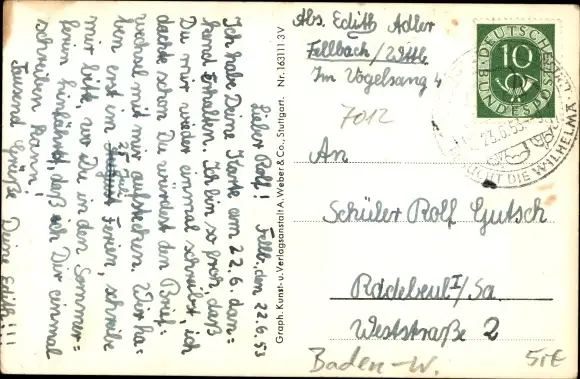 Lieber Rolf! Fellb., den 22.6.53
Ich habe Deine Karte am 22.6. dan=
kend erhalten. Ich bin so froh, daß
Du mir wieder einmal schreibst, ich
dachte schon Du würdest den Brief=
wechsel mit mir aufstecken. Wir ha=
ben erst im 25. Juli Ferien, schreibe
mir bitte, wo Du in den Sommer=
ferien hinfährst, daß ich Dir einmal
schreiben kann,
Tausend Grüße Deine Edith!!!
Graph. Kunst- u. Verlagsanstalt A. Weber & Co., Stuttgart. Nr. 163111 3V
Abs. Edith Adler
Fellbach/Wttb.
Im Vogelsang 4
7012
DEUTSCHE
BUNDESPOST
10
23.6.53
DIE WILHELMA
An
Schüler Rolf Gutsch
Radebeul I/Sa.
Weststraße 2
Baden-W.